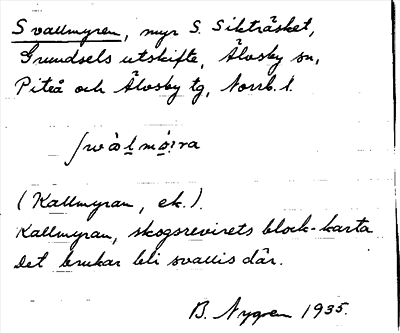 Svallmyren, myr S. Sikträsket,
Grundsels utskifte, Älvsby sn,
Piteå och Älvsby tg, Norrb. l.
ʃwàlmø̀ra
(Kallmyran, ek.).
Kallmyran, skogsrevirets block-karta
Det brukar bli svallis där.
B. Nygren 1935.